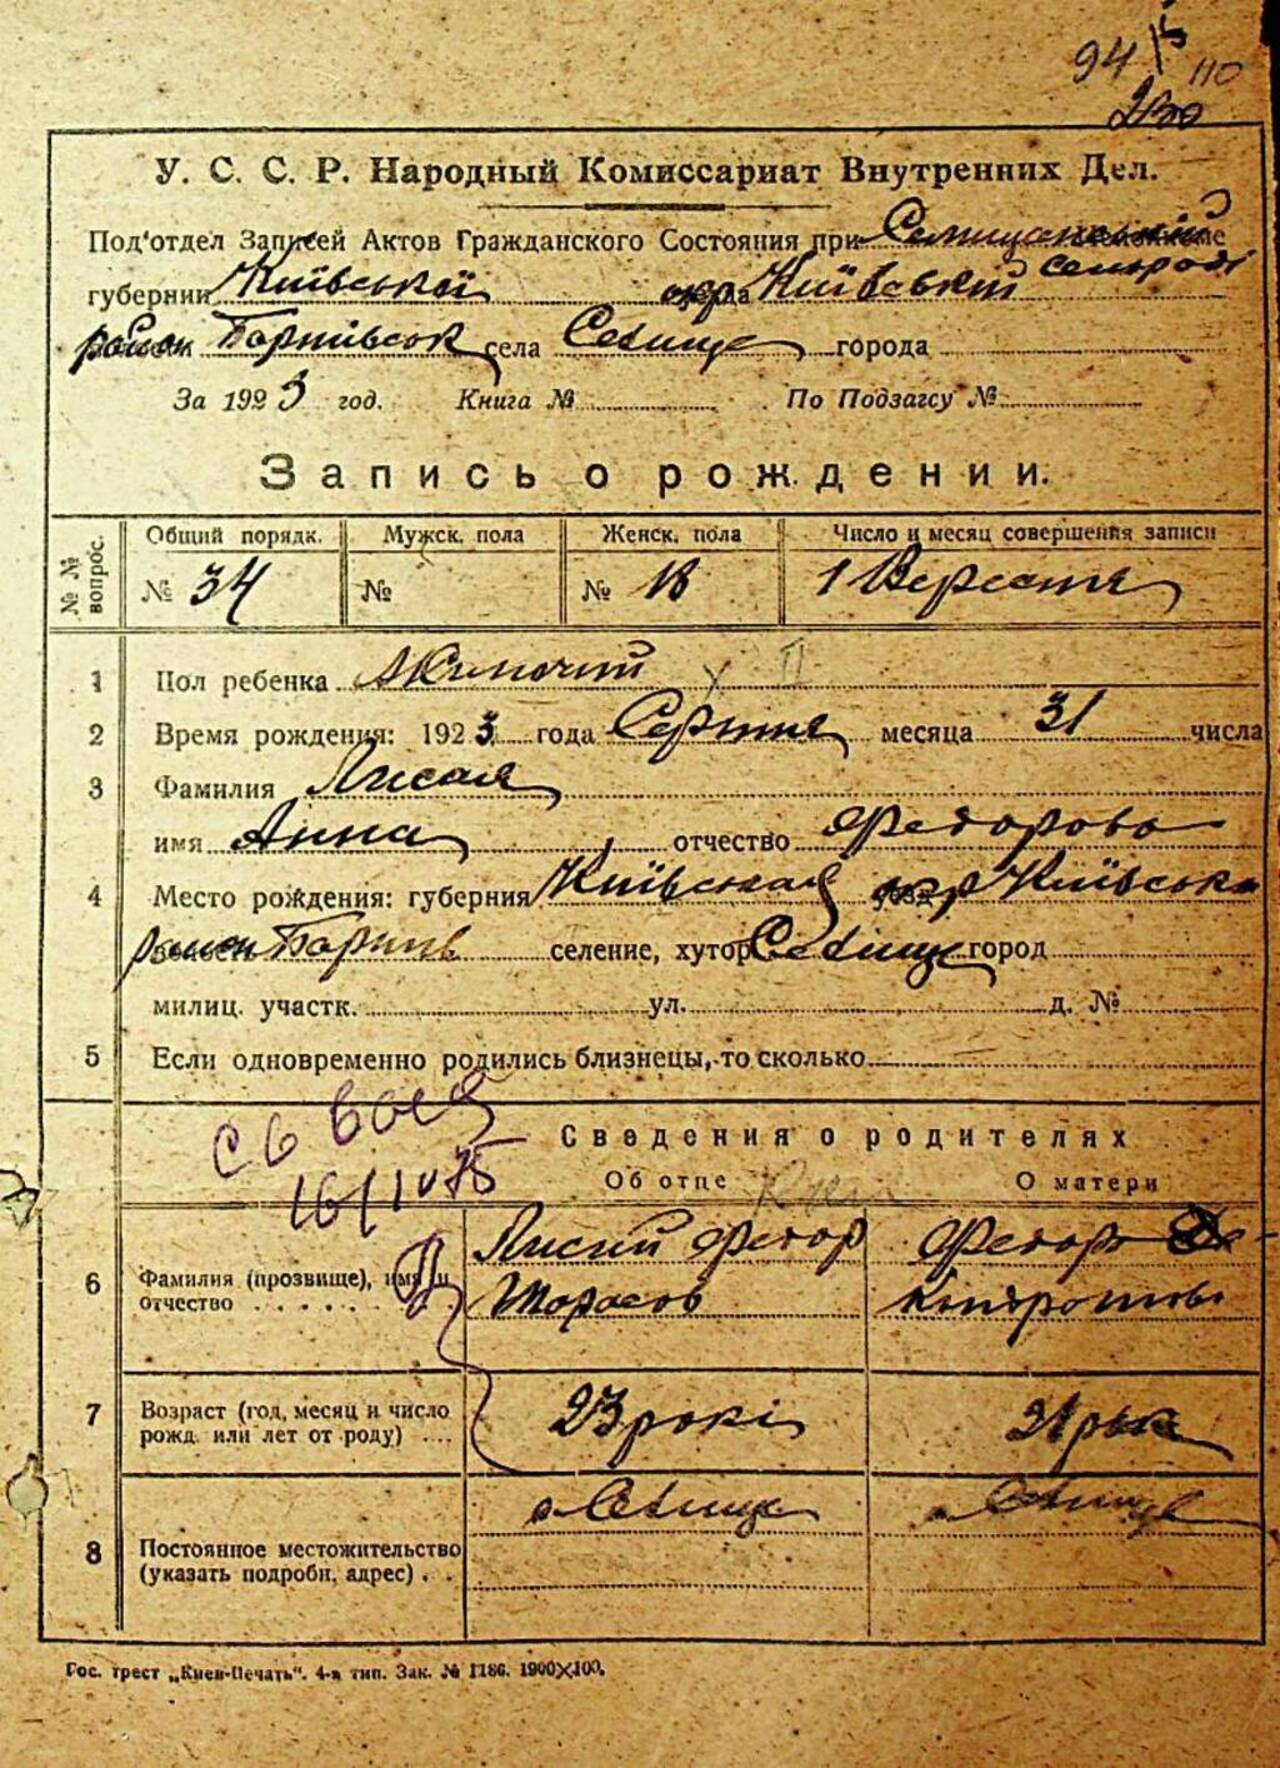 94 15 110
230
У. С. С. Р. Народный Комиссариат Внутренних Дел.
Под'отдел Записей Актов Гражданского Состояния при
губернии Київської окр Київський сельрада
район села Селище города
За 1923 год. Книга № По Подзагсу №
Запись о рождении.
№ № вопрос. Общий порядк. Мужск. пола Женск. пола Число и месяц совершения записи
№ 34 № № 18 1 Вересня
1 Пол ребенка Жиночий II
2 Время рождения: 1923 года Серпня месяца 31 числа
3 Фамилия Лисая
имя Анна отчество Федорова
4 Место рождения: губерния Київская окр Київська
район селение, хутор Селище город
милиц. участк. ул. д. №
5 Если одновременно родились близнецы, то сколько
16/IV 75
Сведения о родителях
Об отце О матери
6 Фамилия (прозвище), имя и отчество Лисий Федор Тарасов
7 Возраст (год, месяц и число рожд. или лет от роду) 23 рокі 21 рік
8 Постоянное местожительство (указать подробн. адрес) с Селище с Селище
Гос. трест „Киев-Печать". 4-я тип. Зак. № 1186. 1900×100.